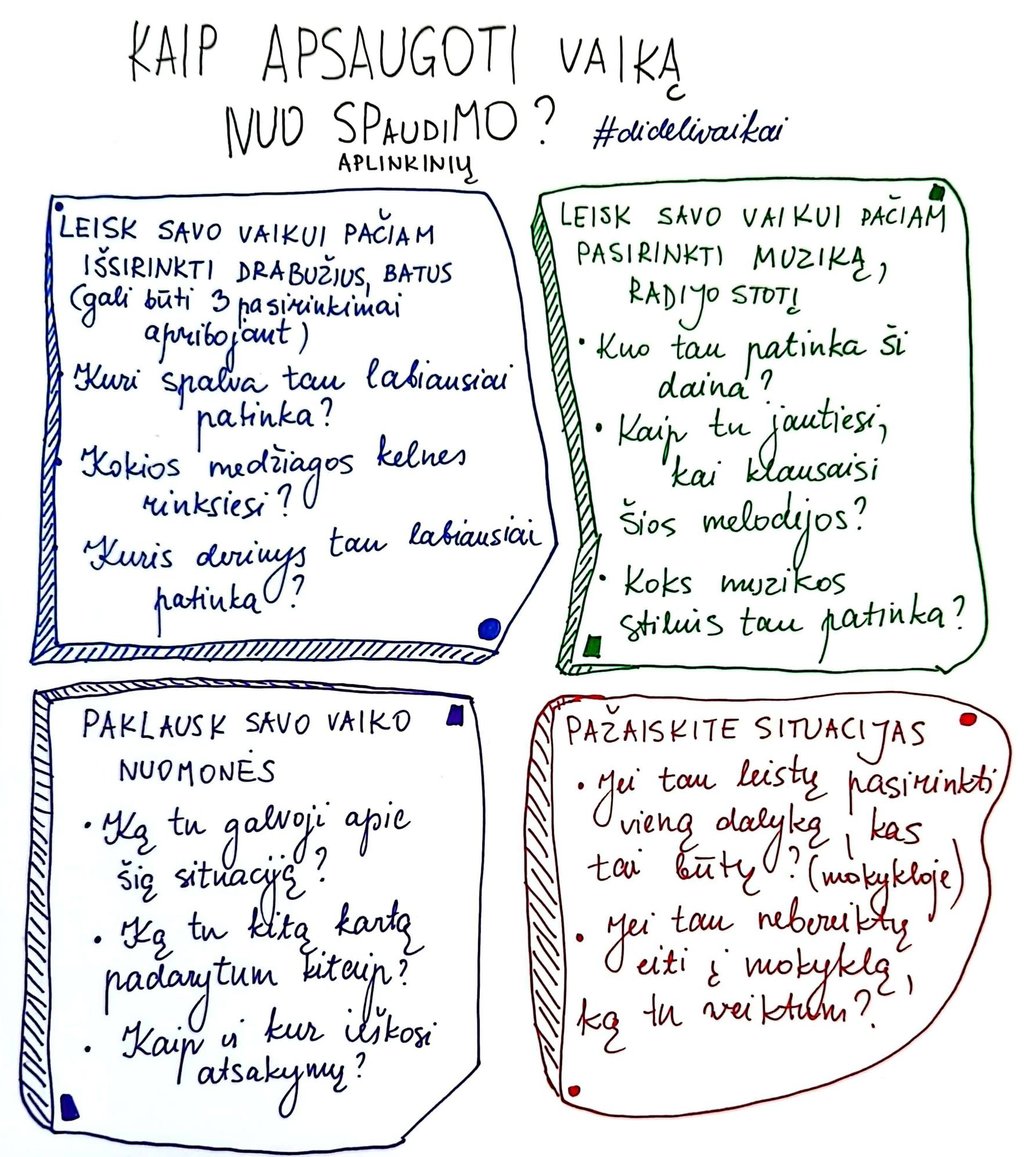 KAIP APSAUGOTI VAIKĄ
NUO SPAUDIMO? #didelivaikai
APLINKINIŲ
LEISK SAVO VAIKUI PAČIAM
IŠSIRINKTI DRABUŽIUS, BATUS
(gali būti 3 pasirinkimai
apribojant)
• Kuri spalva tau labiausiai
patinka?
• Kokios medžiagos kelnes
rinksiesi?
• Kuris derinys tau labiausiai
patinka?
LEISK SAVO VAIKUI PAČIAM
PASIRINKTI MUZIKĄ,
RADIJO STOTĮ
• Kuo tau patinka ši
daina?
• Kaip tu jautiesi,
kai klausaisi
šios melodijos?
• Koks muzikos
stilius tau patinka?
PAKLAUSK SAVO VAIKO
NUOMONĖS
• Ką tu galvoji apie
šią situaciją?
• Ką tu kitą kartą
padarytum kitaip?
• Kaip ir kur ieškosi
atsakymų?
PAŽAISKITE SITUACIJAS
• Jei tau leistų pasirinkti
vieną dalyką, kas
tai būtų? (mokykloje)
• Jei tau nebereiktų
eiti į mokyklą,
ką tu veiktum?